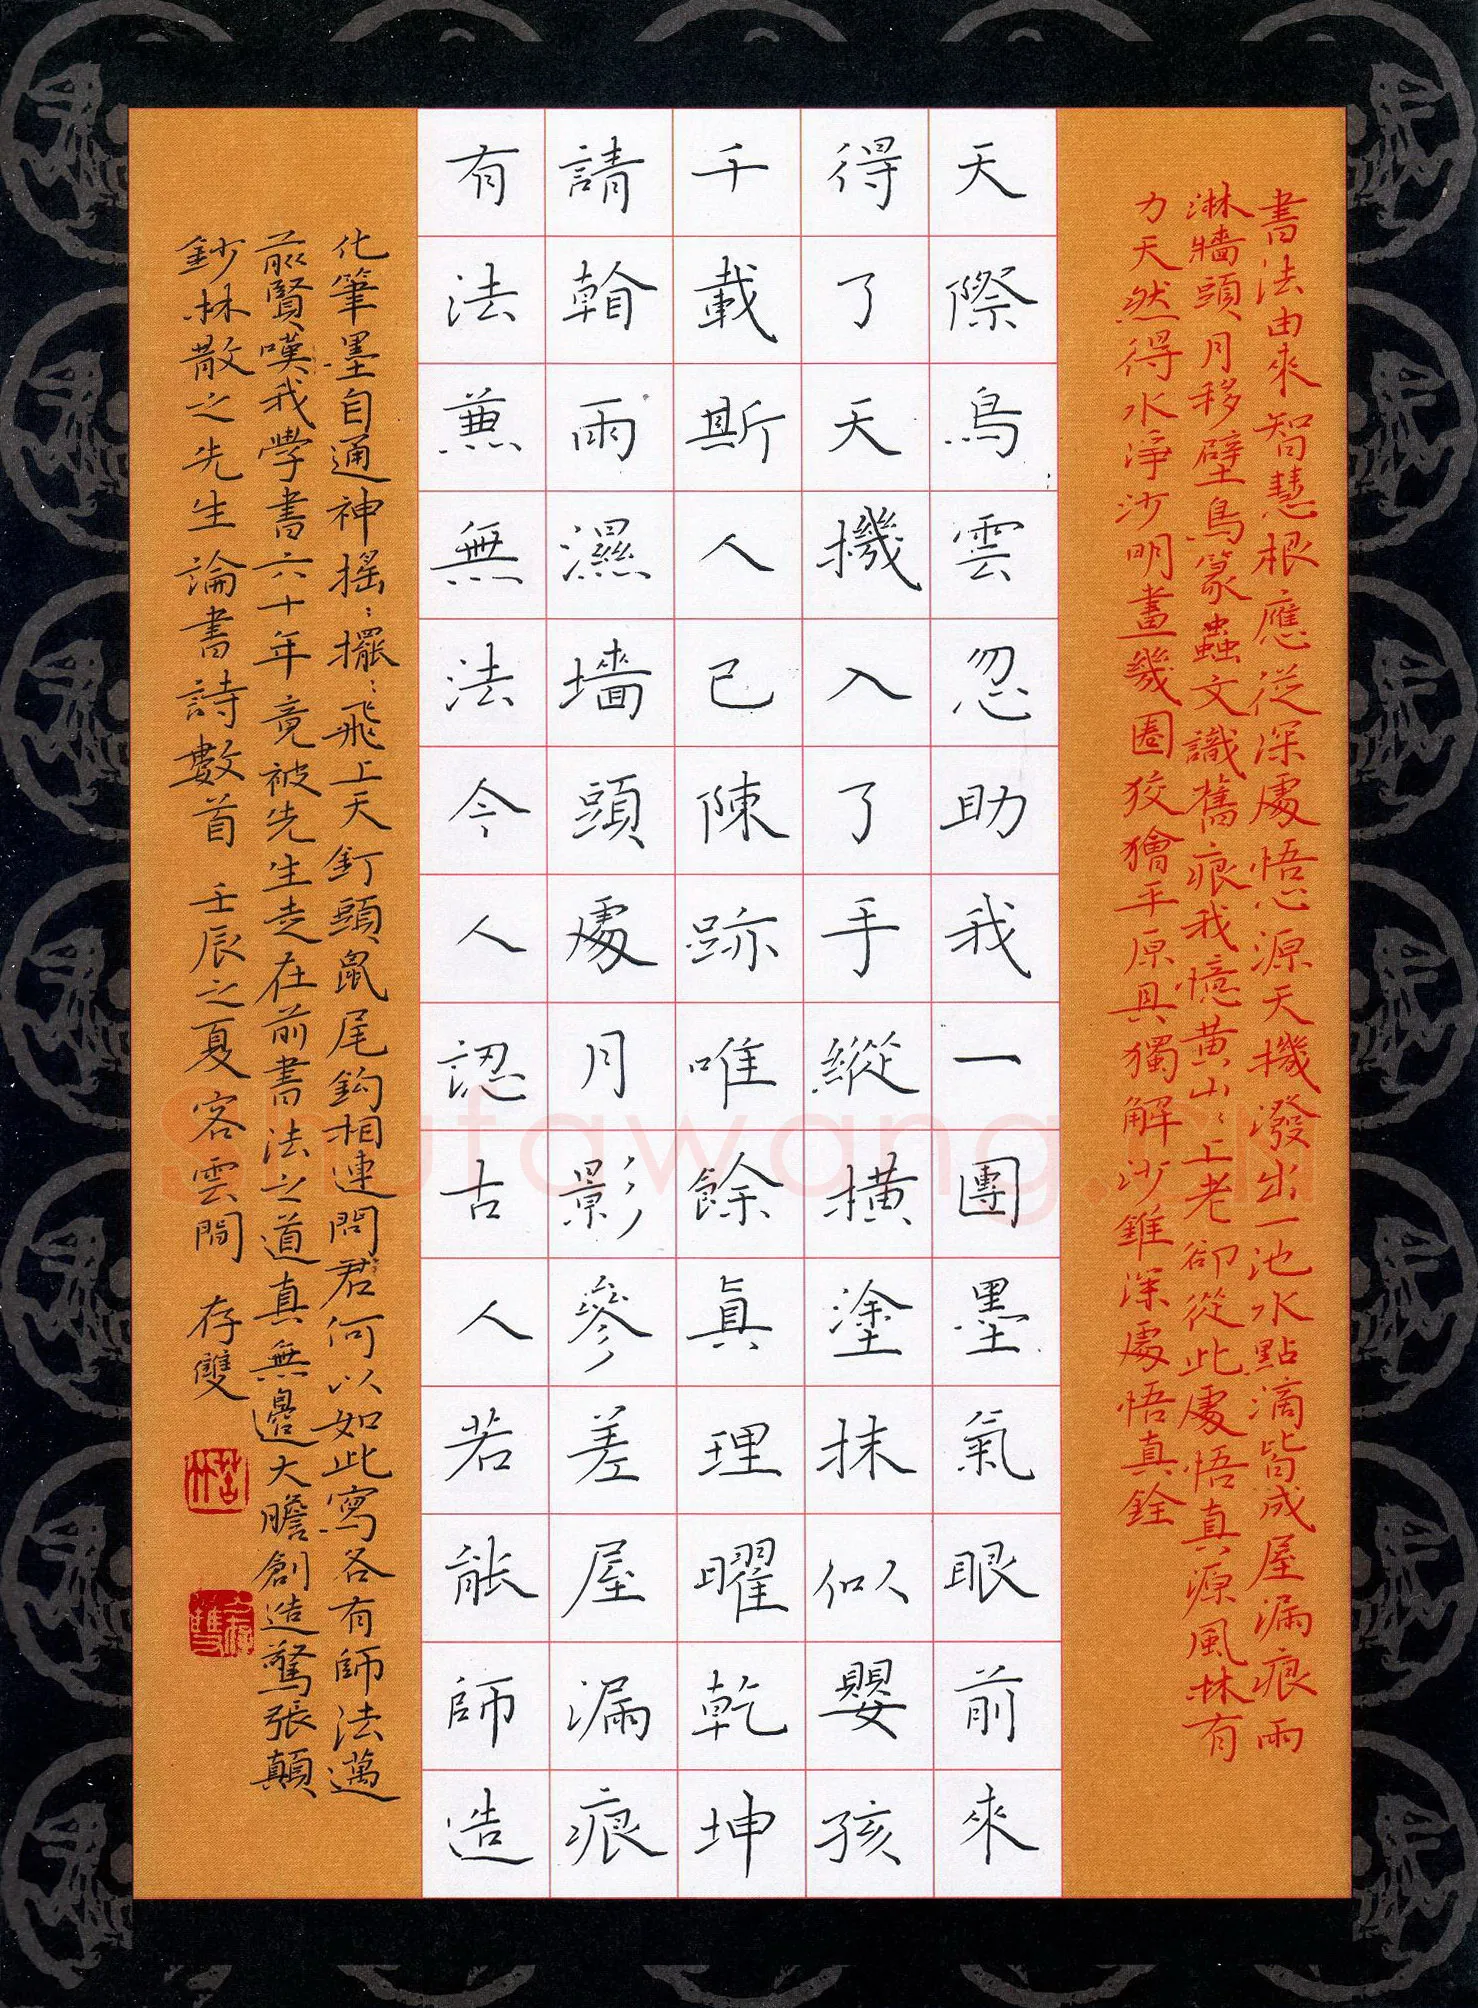 書法由來智慧根應從深處悟心源天機潑出一池水點滴皆成屋漏痕雨
淋牆頭月移壁鳥篆蟲文識舊痕我憶黄山山上老卻從此處悟真源風林有
力天然得水淨沙明畫幾圈狡獪平原具獨解沙錐深處悟真銓
天際烏雲忽助我一團墨氣眼前來
得了天機入了手縱橫塗抹似嬰孩
千載斯人已陳跡唯餘真理曜乾坤
請翰雨濕墻頭處月影參差屋漏痕
有法兼無法令人認古人若能師造
化筆墨自通神搖搖擺擺飛上天釘頭鼠尾鈎相連問君何以如此寫各有師法邁
前賢嘆我學書六十年竟被先生走在前書法之道真無邊大膽創造驚張顛
鈔林散之先生論書詩數首 壬辰之夏客雲間 存雙
存雙
Shufawang.CN